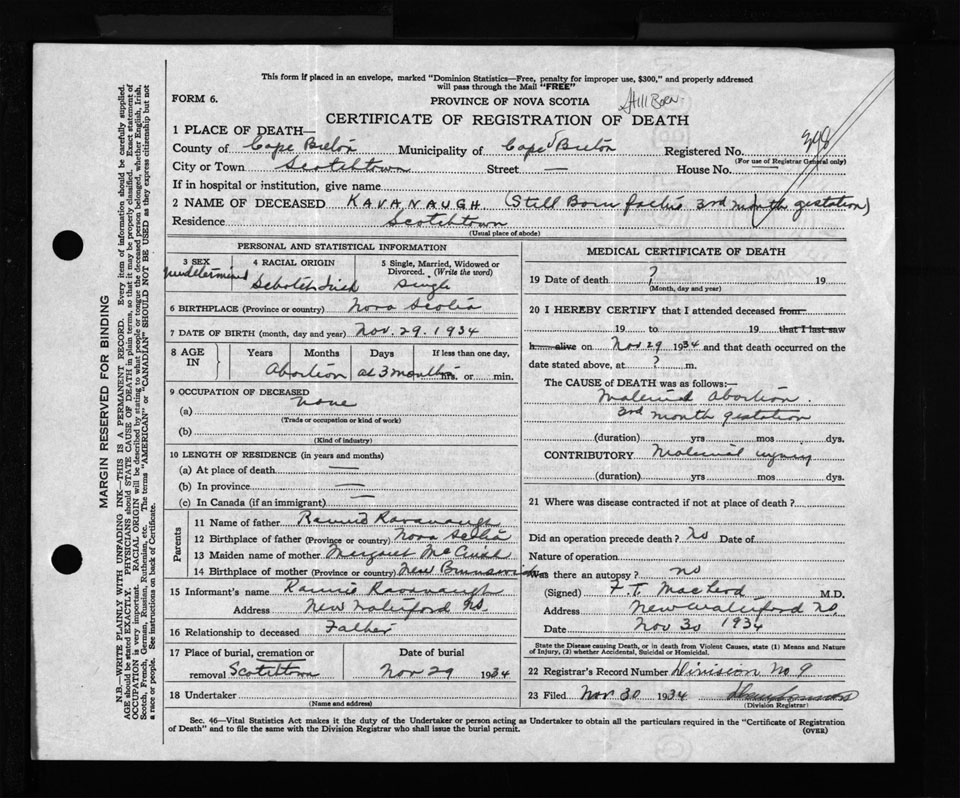 This form if placed in an envelope, marked "Dominion Statistics—Free, penalty for improper use, $300," and properly addressed
will pass through the Mail "FREE"
FORM 6.
PROVINCE OF NOVA SCOTIA
Still Born
CERTIFICATE OF REGISTRATION OF DEATH
1 PLACE OF DEATH—
County of Cape Breton Municipality of Cape Breton Registered No.
(For use of Registrar General only)
City or Town Scotchtown Street — House No. —
If in hospital or institution, give name
2 NAME OF DECEASED KAVANAUGH (Still Born 3rd month gestation)
Residence Scotchtown
(Usual place of abode)
PERSONAL AND STATISTICAL INFORMATION
3 SEX 4 RACIAL ORIGIN 5 Single, Married, Widowed or Divorced. (Write the word)
undetermined Irish Single
6 BIRTHPLACE (Province or country) Nova Scotia
7 DATE OF BIRTH (month, day and year) Nov. 29. 1934
8 AGE IN Years Months Days If less than one day,
Abortion at 3 months hrs. or min.
9 OCCUPATION OF DECEASED
(a) None
(Trade or occupation or kind of work)
(b)
(Kind of industry)
10 LENGTH OF RESIDENCE (in years and months)
(a) At place of death —
(b) In province —
(c) In Canada (if an immigrant) —
Parents
11 Name of father Kavanaugh
12 Birthplace of father (Province or country) Nova Scotia
13 Maiden name of mother Margaret
14 Birthplace of mother (Province or country) New Brunswick
15 Informant's name Kavanaugh
Address New Waterford NS.
16 Relationship to deceased Father
17 Place of burial, cremation or removal Scotchtown Date of burial Nov 29 1934
18 Undertaker
(Name and address)
MEDICAL CERTIFICATE OF DEATH
19 Date of death ? 19
(Month, day and year)
20 I HEREBY CERTIFY that I attended deceased from
19 to 19 that I last saw
h alive on Nov 29 1934 and that death occurred on the
date stated above, at ? m.
The CAUSE of DEATH was as follows:—
Abortion
3rd month gestation
(duration) yrs mos dys.
CONTRIBUTORY
(duration) yrs mos dys.
21 Where was disease contracted if not at place of death?
Did an operation precede death? No Date of
Nature of operation
Was there an autopsy? no
(Signed) F.T. MacLeod M.D.
Address New Waterford NS.
Date Nov 30 1934
State the Disease causing Death, or in death from Violent Causes, state (1) Means and Nature
of Injury, (2) whether Accidental, Suicidal or Homicidal.
22 Registrar's Record Number Division No 9
23 Filed Nov 30 1934
(Division Registrar)
Sec. 46—Vital Statistics Act makes it the duty of the Undertaker or person acting as Undertaker to obtain all the particulars required in the "Certificate of Registration
of Death" and to file the same with the Division Registrar who shall issue the burial permit.
(OVER)
MARGIN RESERVED FOR BINDING
N.B.—WRITE PLAINLY WITH UNFADING INK—THIS IS A PERMANENT RECORD. Every item of information should be carefully supplied.
AGE should be stated EXACTLY. PHYSICIANS should STATE CAUSE OF DEATH in plain terms, so that it may be properly classified. Exact statement of
OCCUPATION is very important. RACIAL ORIGIN will be described by stating to what people or tongue the deceased person belonged, whether English, Irish,
Scotch, French, German, Russian, Ruthenian, etc. The terms "AMERICAN" or "CANADIAN" SHOULD NOT BE USED as they express citizenship but not
a race or people. See instructions on back of Certificate.